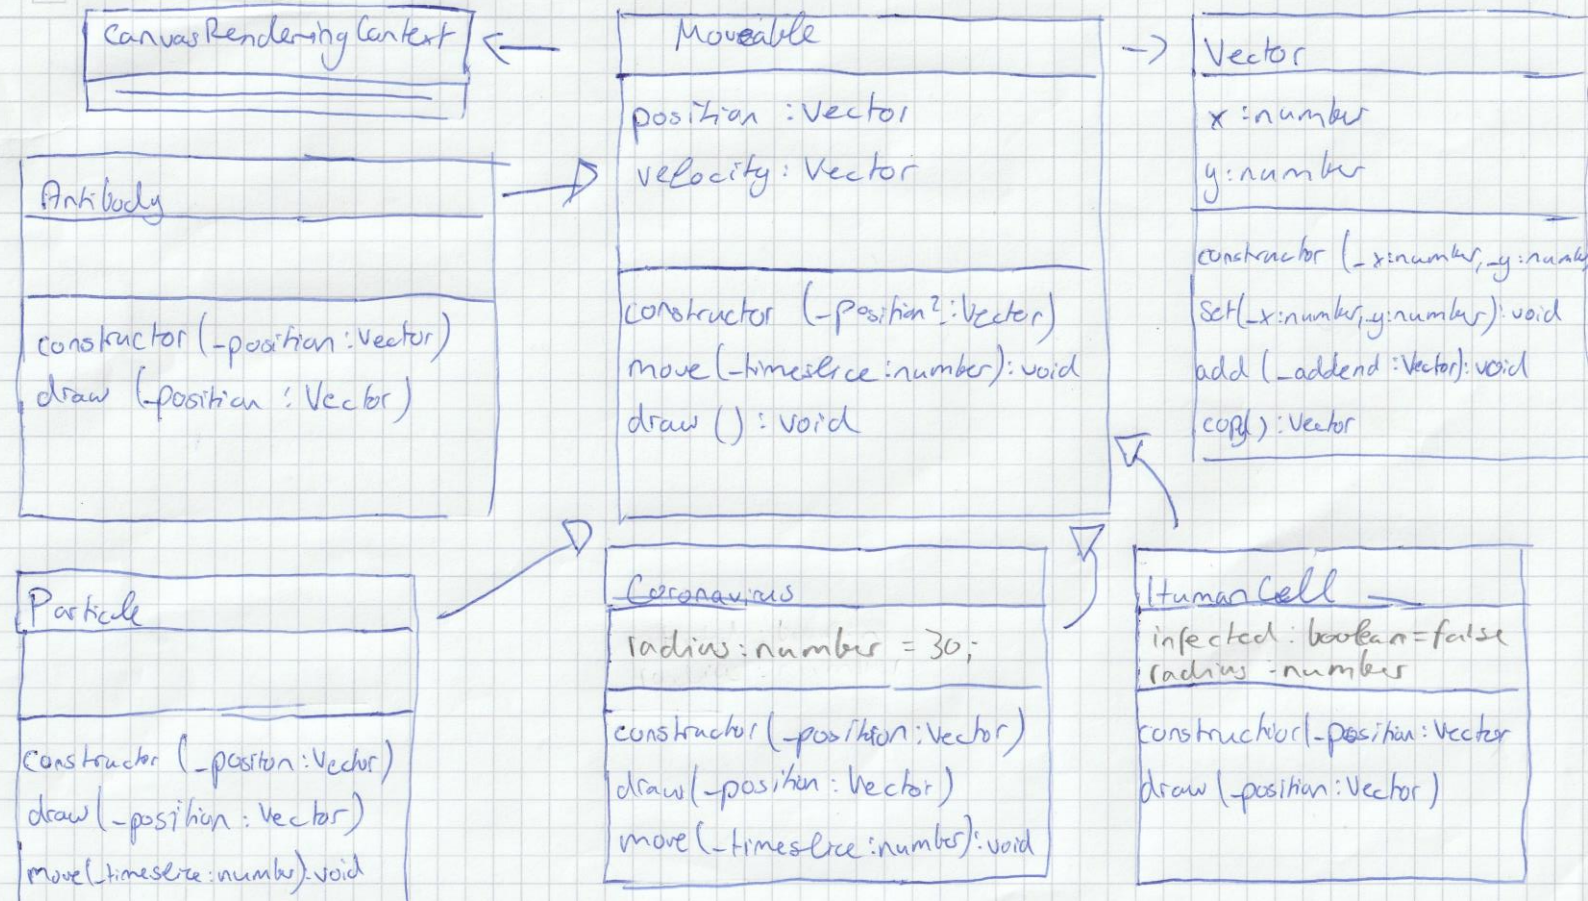 CanvasRenderingContext
Moveable
position : Vector
velocity : Vector
constructor (_position? : Vector)
move (_timeslice : number) : void
draw () : void
Vector
x : number
y : number
constructor (_x : number, _y : numbe
set(_x : number, _y : number) : void
add (_addend : Vector) : void
copy() : Vector
Antibody
constructor (_position : Vector)
draw (_position : Vector)
Particle
constructor (_positon : Vector)
draw (_position : Vector)
move (_timeslice : number) : void
Coronavirus
radius : number = 30;
constructor (_position : Vector)
draw (_position : Vector)
move (_timeslice : number) : void
HumanCell
infected : boolean = false
radius : number
constructior(_position : Vector
draw (_position : Vector)